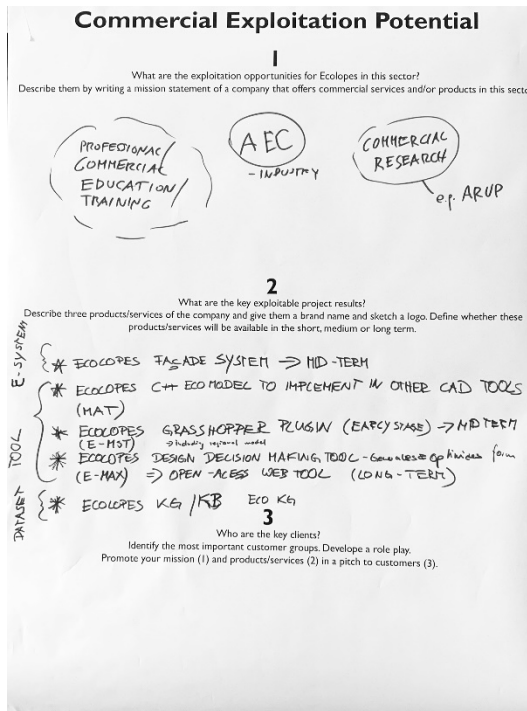 Commercial Exploitation Potential
1
What are the exploitation opportunities for Ecolopes in this sector?
Describe them by writing a mission statement of a company that offers commercial services and/or products in this secto
PROFESIONAL/
COMMERCIAL
EDUCATION/
TRAINING
AEC
- INDUSTRY
COMMERCIAL
RESEARCH
e.g. ARUP
2
What are the key exploitable project results?
Describe three products/services of the company and give them a brand name and sketch a logo. Define whether these
products/services will be available in the short, medium or long term.
E-SYSTEM
* ECOLOPES FAÇADE SYSTEM → MID-TERM
TOOL
* ECOLOPES C++ ECOMODEL TO IMPLEMENT IN OTHER CAD TOOLS
(MAT)
* ECOLOPES GRASSHOPPER PLUGIN (EARLY STAGE) → MIDTERM
(E-MST) → including regional model
* ECOLOPES DESIGN DECISION MAKING TOOL - form
(E-MAX) ⇒ OPEN-ACESS WEB TOOL (LONG-TERM)
DATASET
* ECOLOPES KG /KB ECO KG
3
Who are the key clients?
Identify the most important customer groups. Develope a role play.
Promote your mission (1) and products/services (2) in a pitch to customers (3).